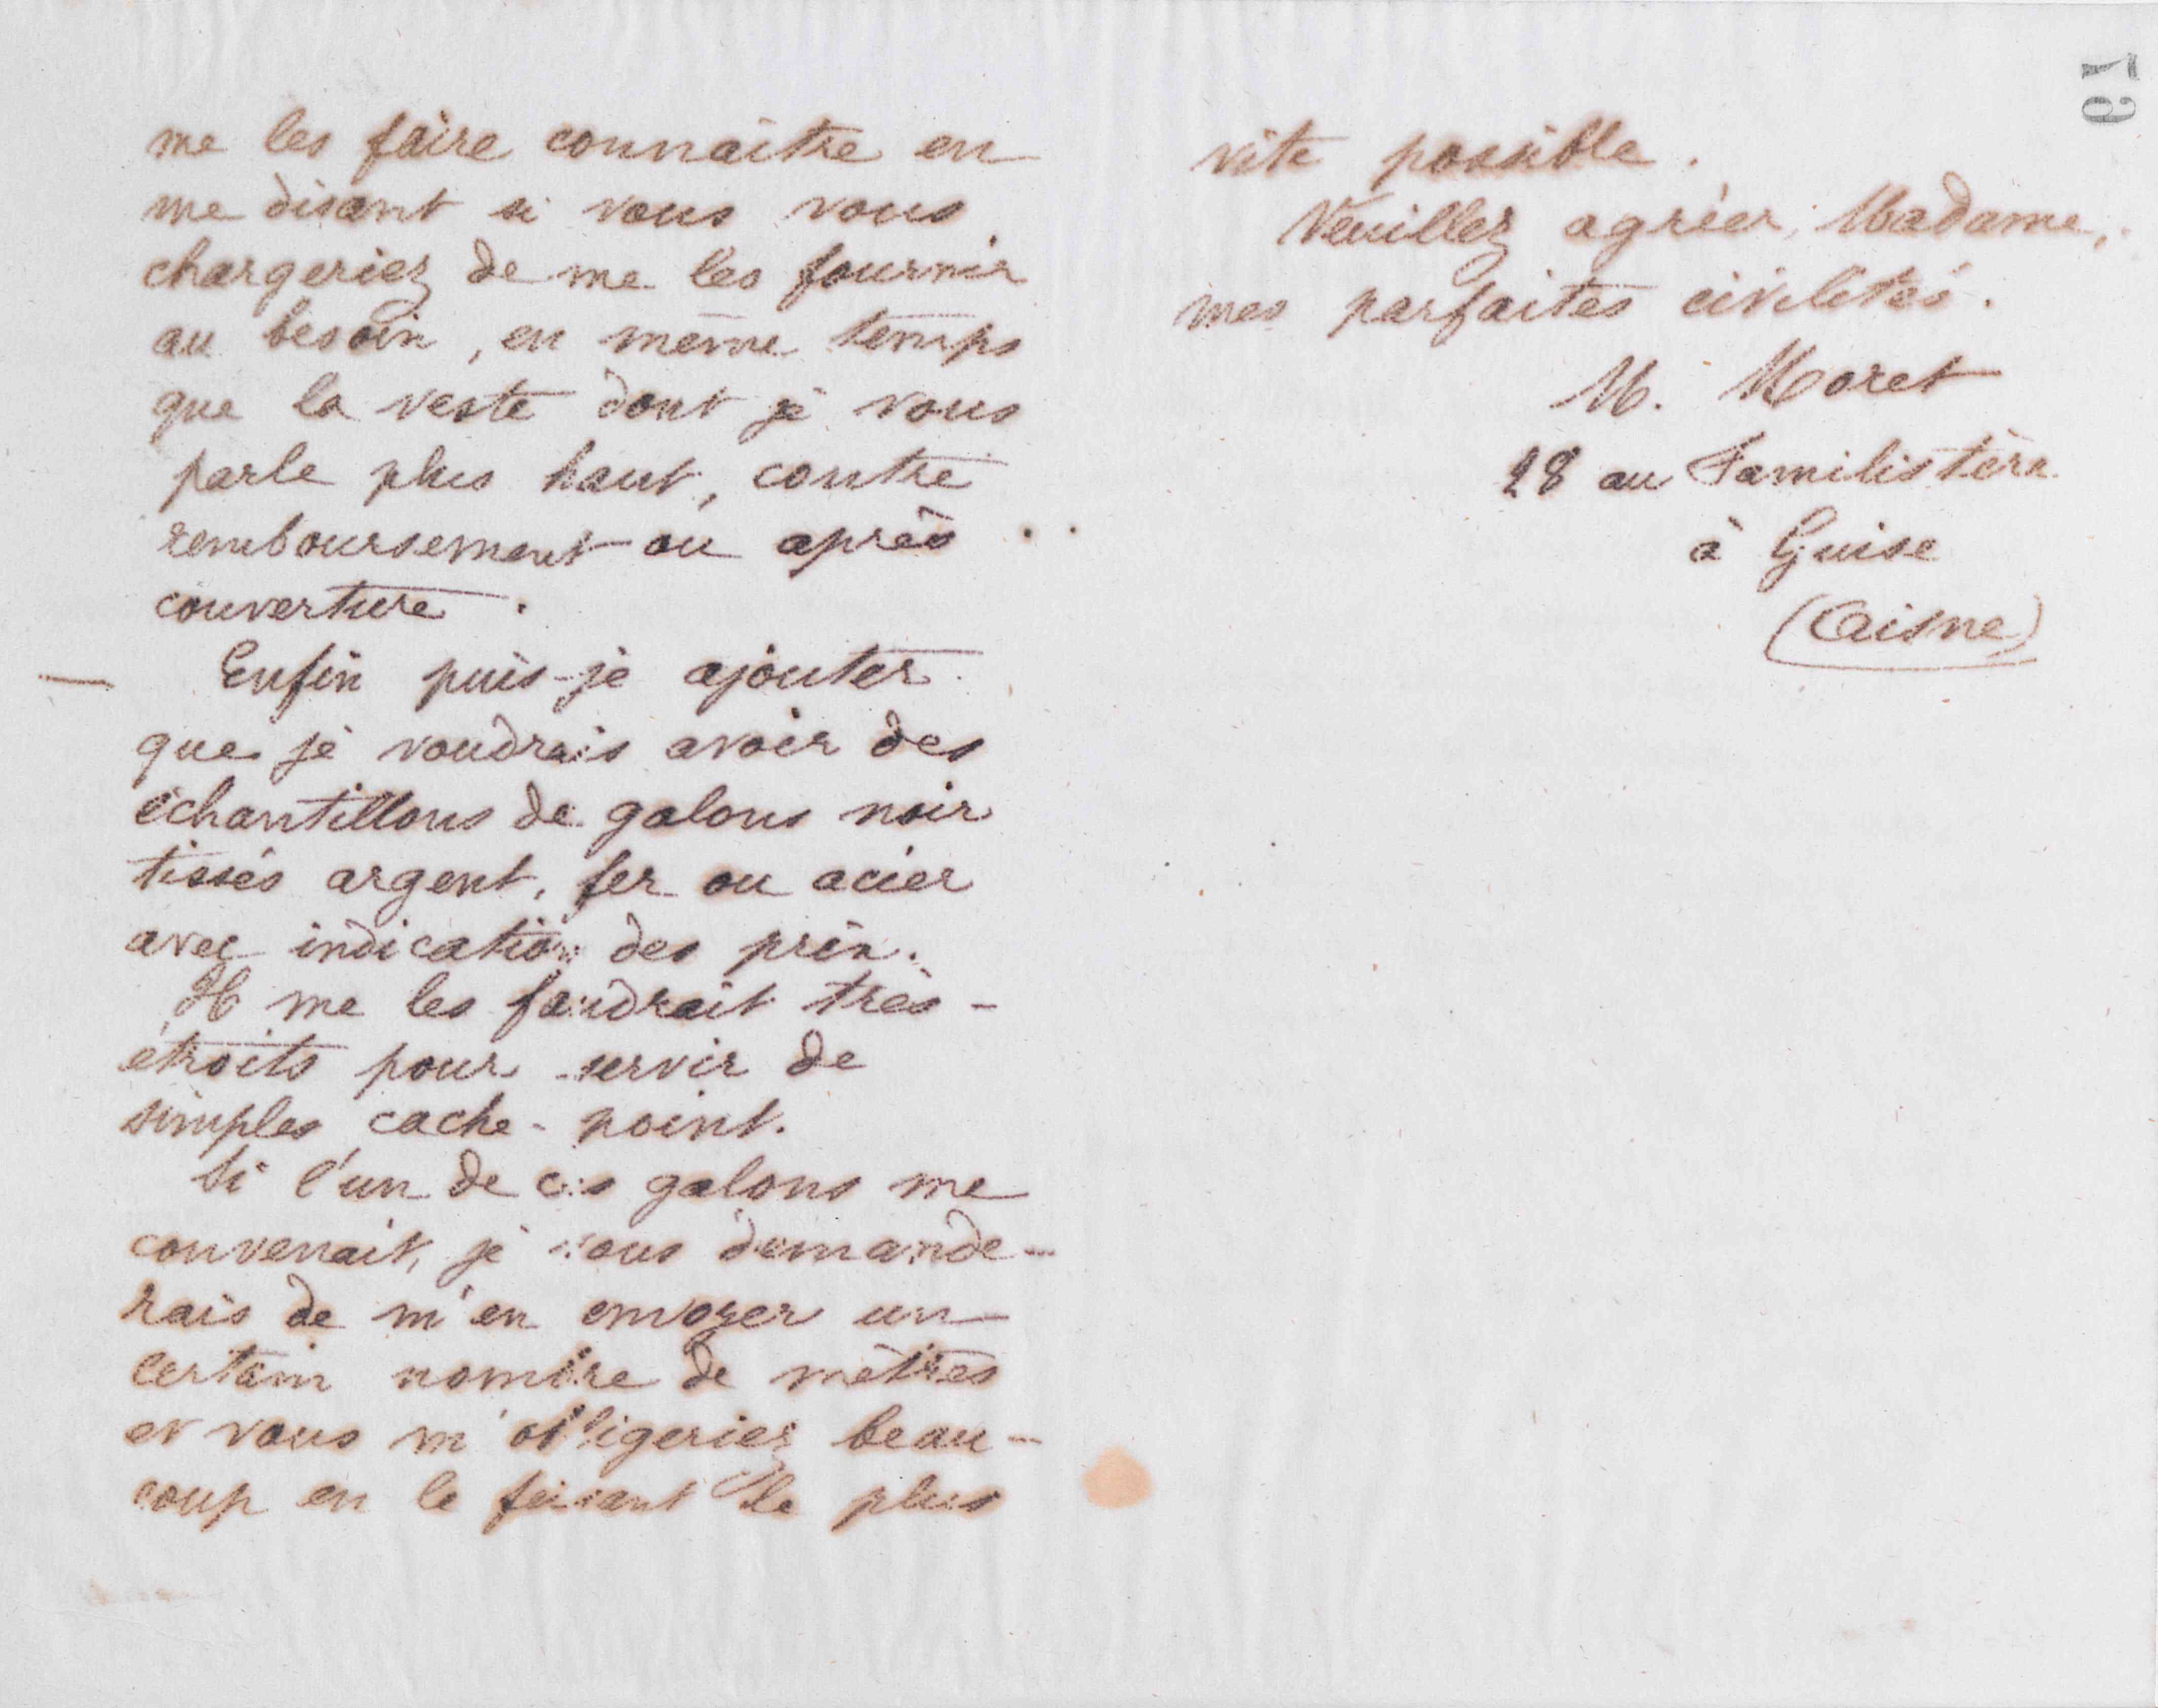 me les faire connaître en
me disant si vous vous
chargeriez de me les fournir
au besoin, en même temps
que la veste dont je vous
parle plus haut, contre
remboursement ou après
couverture.
— Enfin puis-je ajouter
que je voudrais avoir des
échantillons de galons noir
tissés argent, fer ou acier
avec indication des prix.
Il me les faudrait très-
étroits pour servir de
simples cache-point.
Si l'un de ces galons me
convenait, je vous demande-
rais de m'en envoyer un
certain nombre de mètres
et vous m'obligeriez beau-
coup en le faisant le plus
vite possible.
Veuillez agréer, Madame,
mes parfaites civilités.
M. Moret
28 au Familistère
à Guise
(Aisne)
79